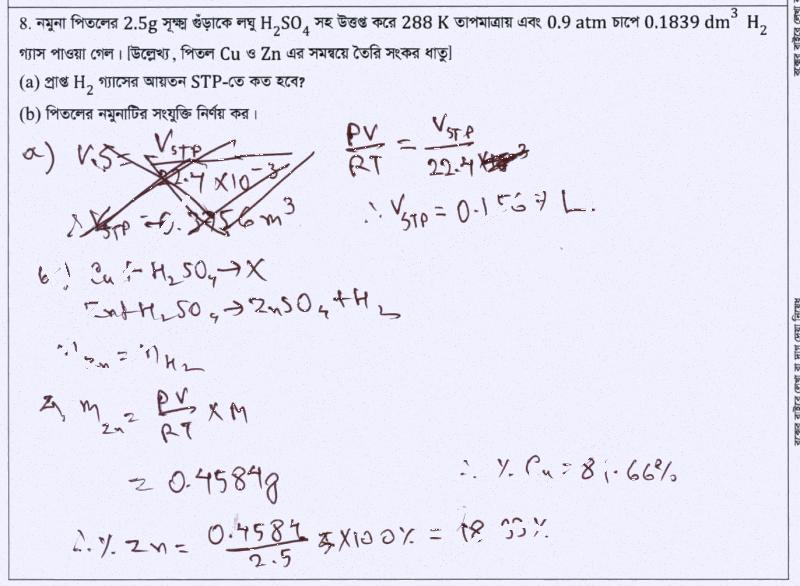 8. নমুনা পিতলের 2.5g সূক্ষ্ম গুঁড়াকে লঘু H₂SO₄ সহ উত্তপ্ত করে 288 K তাপমাত্রায় এবং 0.9 atm চাপে 0.1839 dm³ H₂
গ্যাস পাওয়া গেল। [উল্লেখ্য, পিতল Cu ও Zn এর সমন্বয়ে তৈরি সংকর ধাতু]
(a) প্রাপ্ত H₂ গ্যাসের আয়তন STP-তে কত হবে?
(b) পিতলের নমুনাটির সংযুক্তি নির্ণয় কর।
a) PV/RT = V_STP/22.4
∴ V_STP = 0.1567 L.
b) Cu + H₂SO₄ → X
Zn + H₂SO₄ → ZnSO₄ + H₂
n_Zn = n_H₂
m_Zn = PV/RT × M
= 0.4584g
∴ % Zn = 0.4584/2.5 × 100% =
∴ % Cu = 81.66%